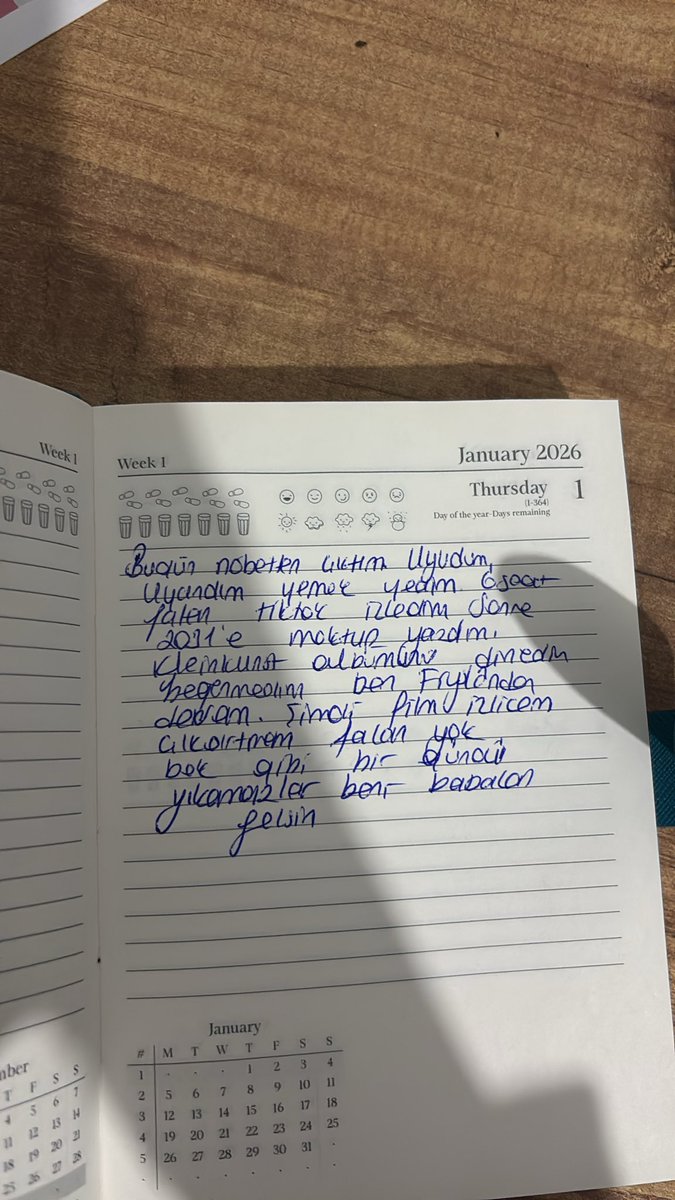 Week 1
Week 1
January 2026
Thursday 1
(1-364)
Day of the year-Days remaining
Bugün nöbetten çıktım Uyudum,
Uyandım yemek yedim 6 saat
falan tiktok izledim Sonra
2031'e mektup yazdım,
Kleinkunst albümünü dinledim
beğenmedim ben Frylanda
devam. Şimdi film izlicem
çıkartmam falan yok
bok gibi bir gündü
yıkamazlar beni babaları
gelsin
January
# M T W T F S S
1 . . . 1 2 3 4
2 5 6 7 8 9 10 11
3 12 13 14 15 16 17 18
4 19 20 21 22 23 24 25
5 26 27 28 29 30 31 .
mber
T F S S
4 5 6 7
11 12 13 14
18 19 20 21
25 26 27 28